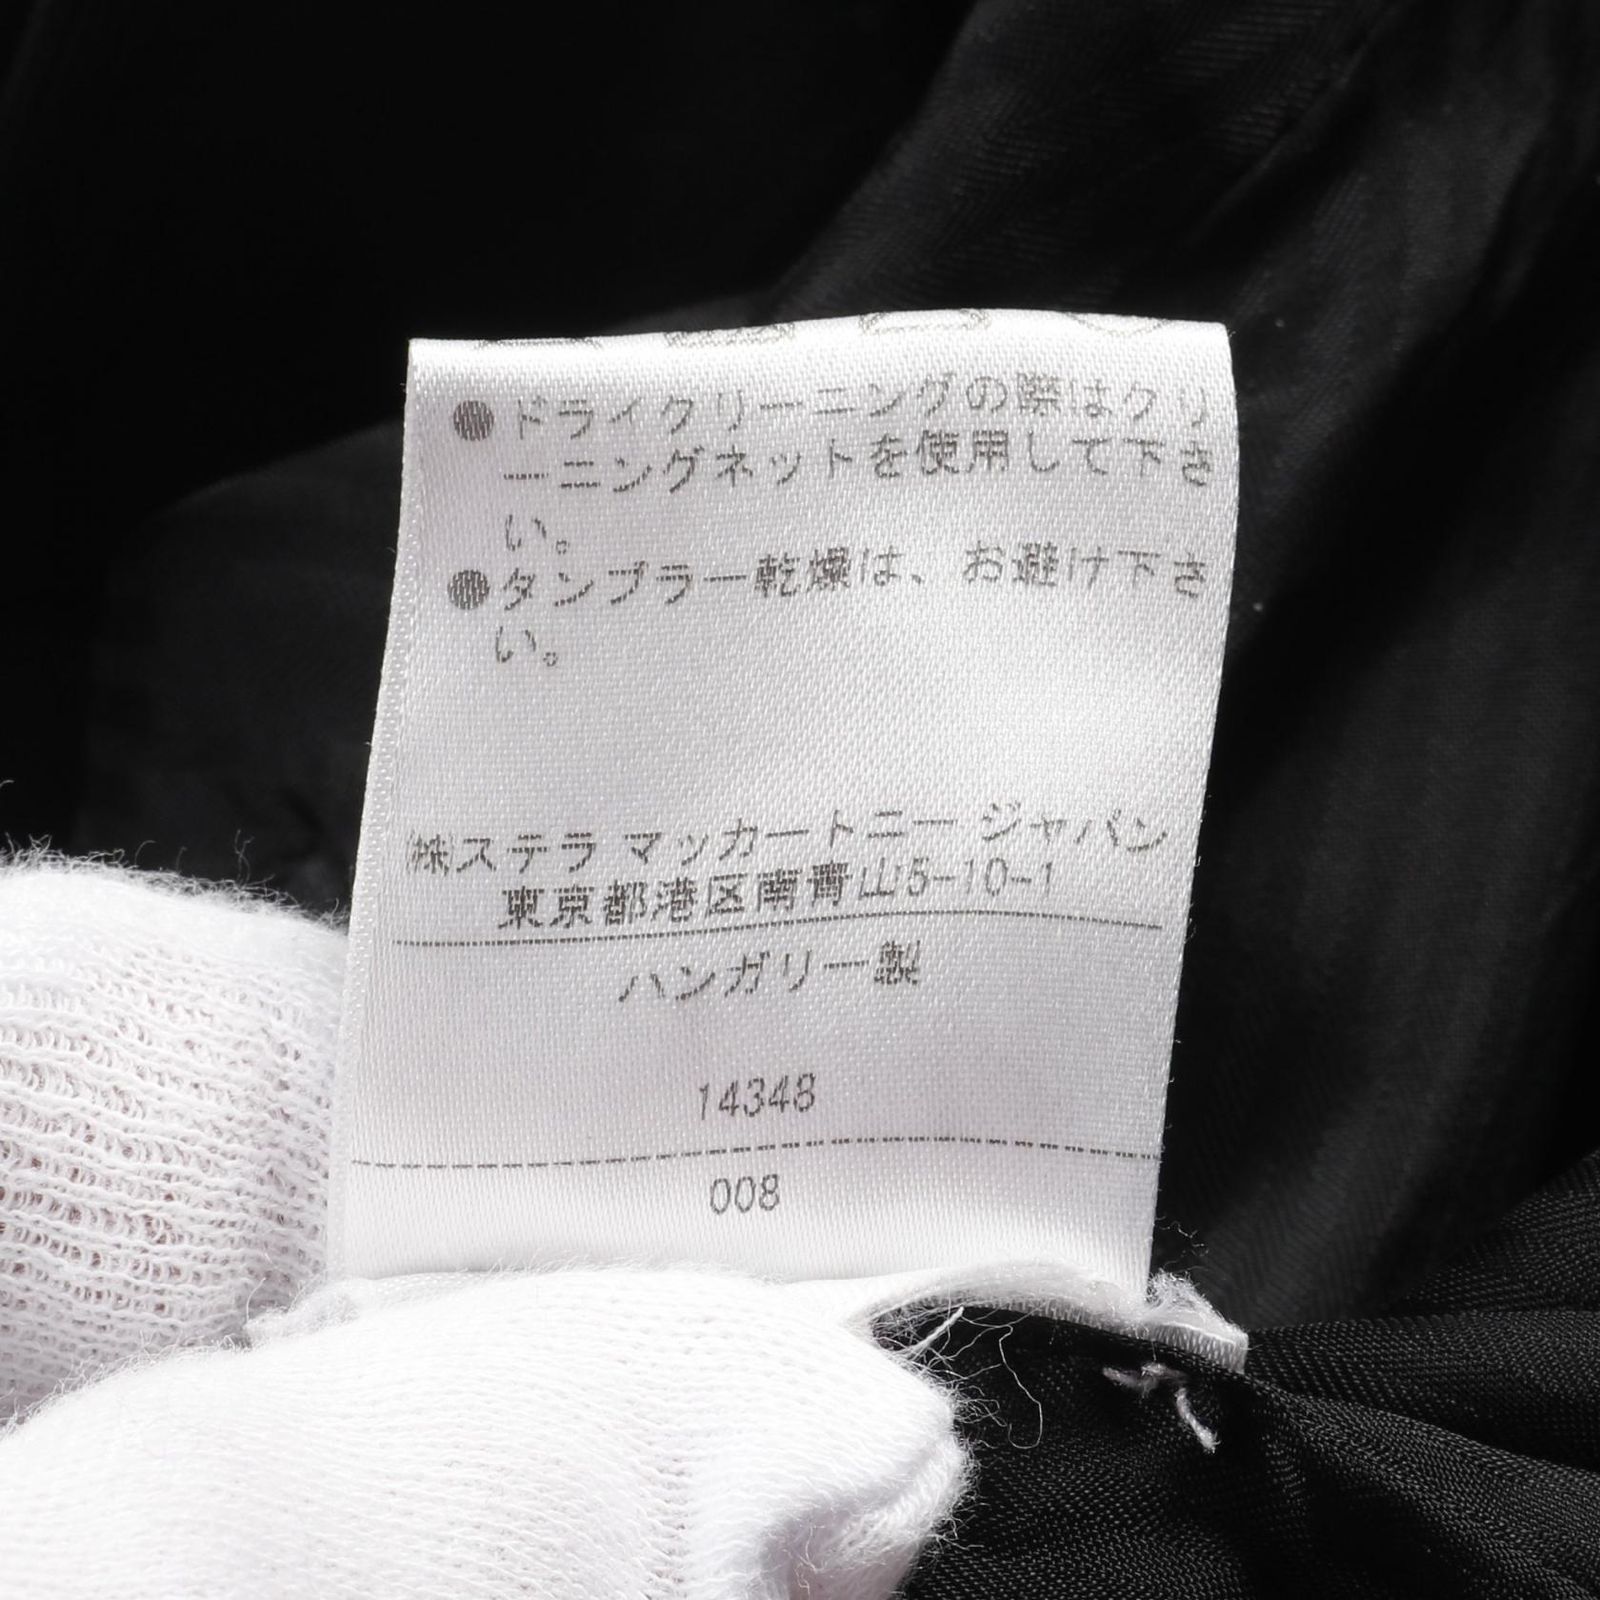 ●ドライクリーニングの際はクリ
ーニングネットを使用して下さ
い。
●タンブラー乾燥は、お避け下さ
い。
㈱ステラ マッカートニー ジャパン
東京都港区南青山5-10-1
ハンガリー製
14348
008